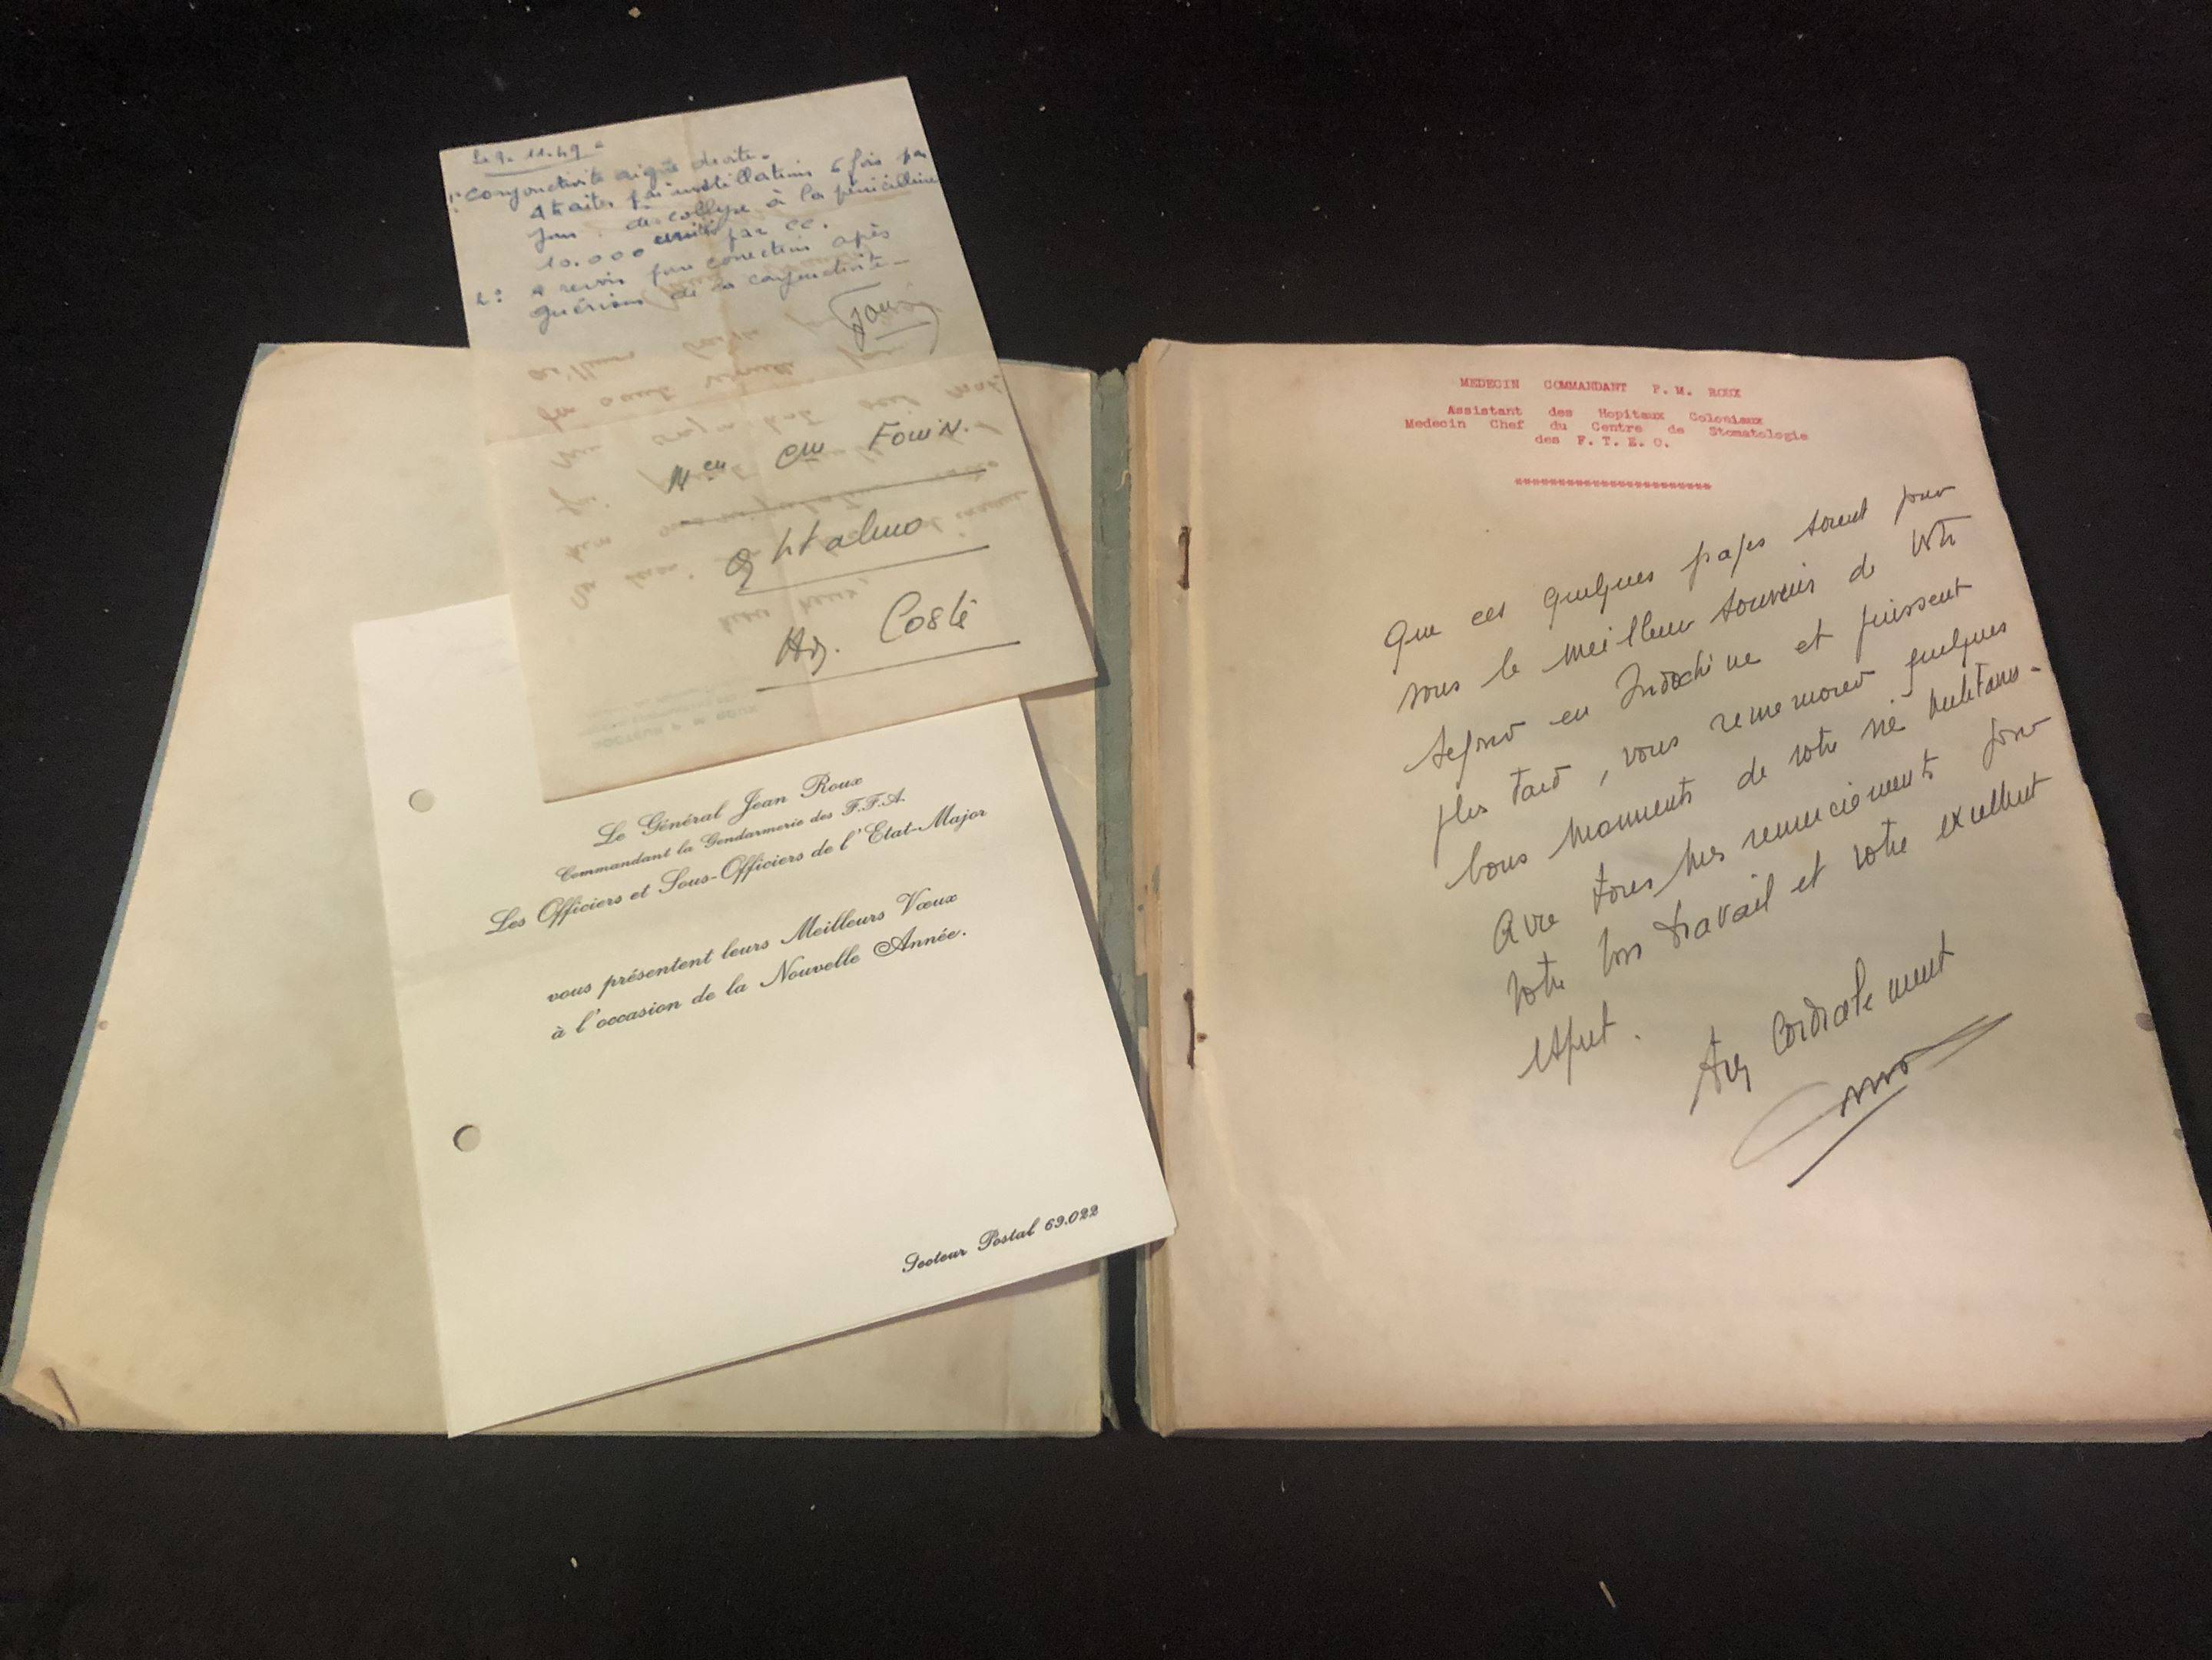 Le 9. 11.49
1: Conjonctivite aigüe droite.
A traiter par instillations 6 fois par
jour de collyre à la pénicilline
10.000 unités par cc.
2: A revoir pour correction après
guérison de la conjonctivite
Men Cm Fouin.
Ophtalmo
Hôp. Coste
Le Général Jean Roux
Commandant la Gendarmerie des F.F.A.
Les Officiers et Sous-Officiers de l'Etat-Major
vous présentent leurs Meilleurs Vœux
à l'occasion de la Nouvelle Année.
Secteur Postal 69.022
MEDECIN COMMANDANT P. M. ROUX
Assistant des Hopitaux Coloniaux
Medecin Chef du Centre de Stomatologie
des F. T. E. O.
************************
Que ces quelques pages soient pour
vous le meilleur souvenir de votre
séjour en Indochine et puissent
plus tard, vous remémorer quelques
bons moments de votre vie militaire.
Avec tous mes remerciements pour
votre bon travail et votre excellent
esprit.
Très Cordialement